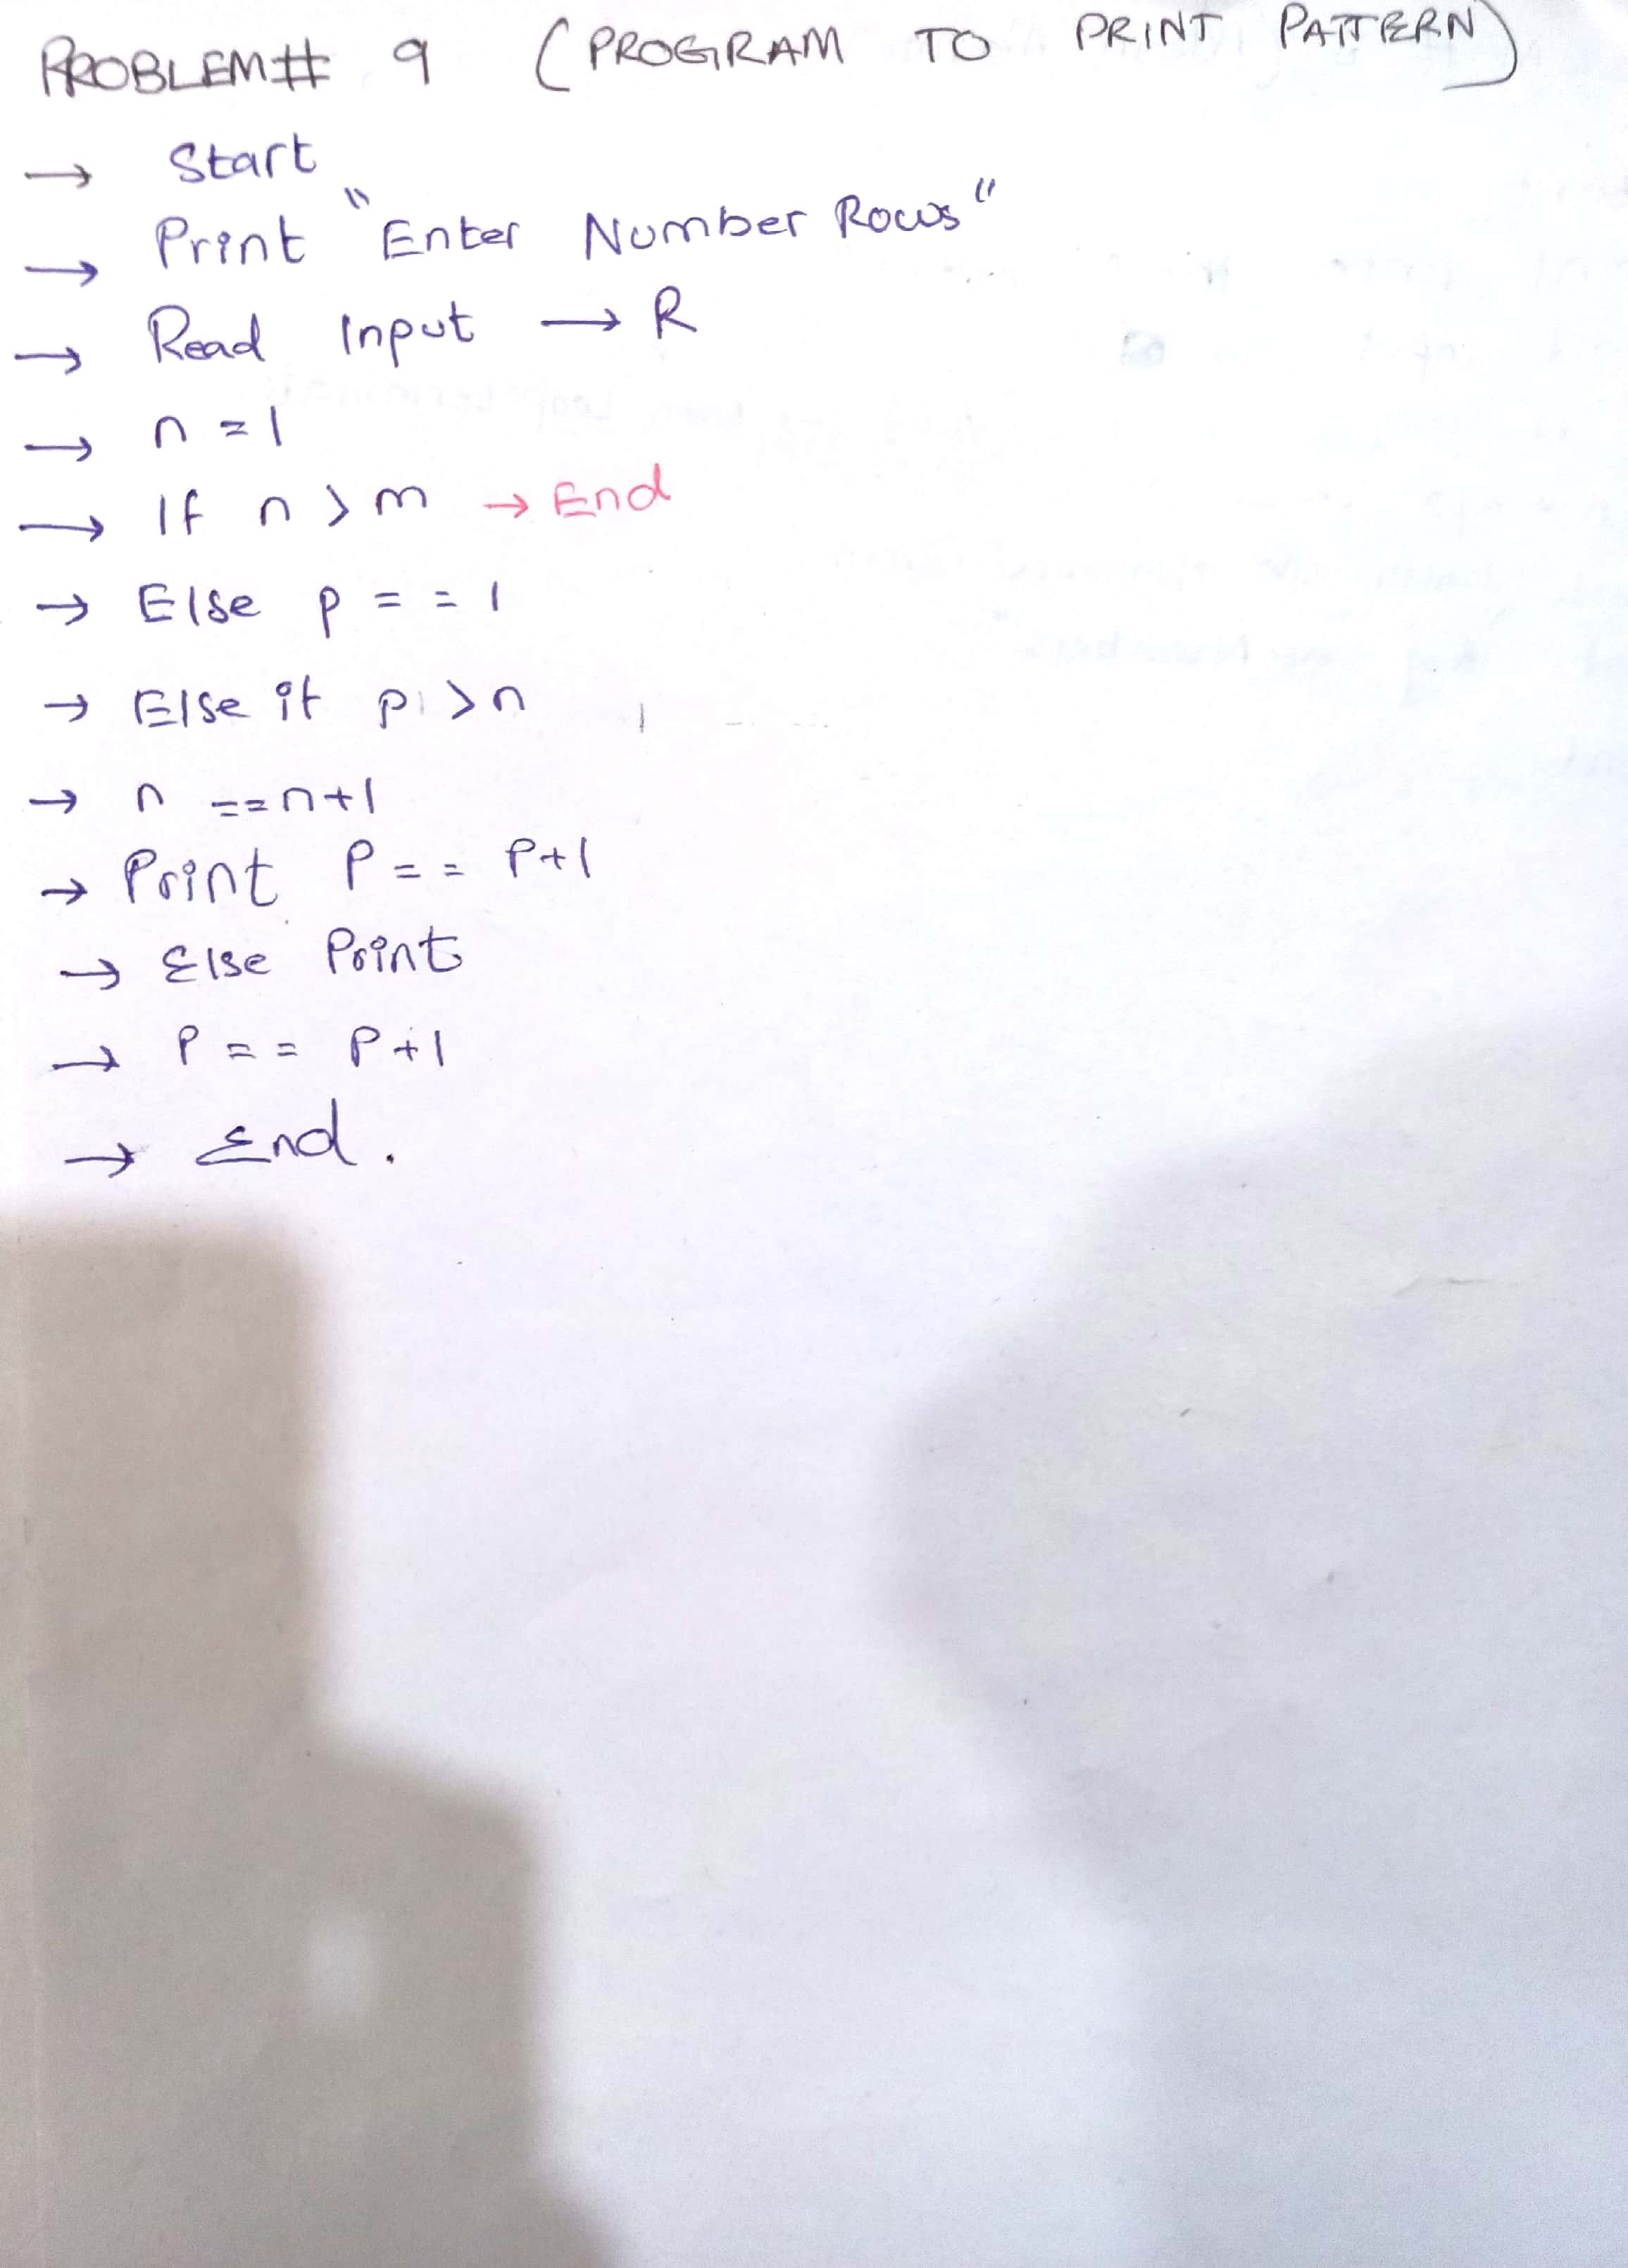 PROBLEM# 9 (PROGRAM TO PRINT PATTERN)
→ Start
→ Print "Enter Number Rows"
→ Read Input → R
→ n = 1
→ If n > m → End
→ Else p = = 1
→ Else if p > n
→ n == n+1
→ Print P = = P+1
→ Else Print
→ P = = P+1
→ End.